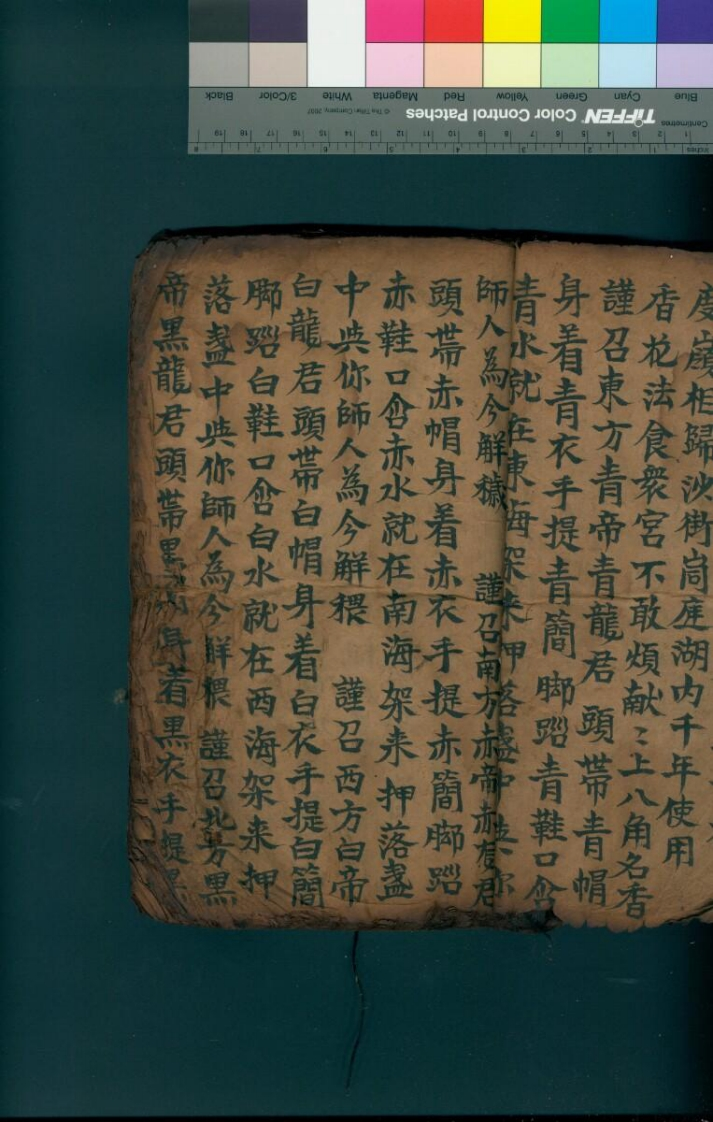 Blue Cyan Green Yellow Red Magenta White 3/Color Black
TIFFEN Color Control Patches © The Tiffen Company, 2007
Centimetres
Inches
度嶺相歸沙街峝庭湖内千年使用
香花法食衆宮不敢煩献〻上八角名香
謹召東方青帝青龍君 頭帶青帽
身着青衣手提青簡 脚踏青鞋口含
青水就在東海架来押落盞中與你
師人為今解穢 謹召南方赤帝赤龍君
頭帶赤帽身着赤衣手提赤簡脚踏
赤鞋口含赤水就在南海架来押落盞
中與你師人為今解穢 謹召西方白帝
白龍君頭帶白帽身着白衣手提白簡
脚踏白鞋口含白水就在西海架来押
落盞中與你師人為今解穢 謹召北方黑
帝黑龍君頭帶黑帽身着黑衣手提黑